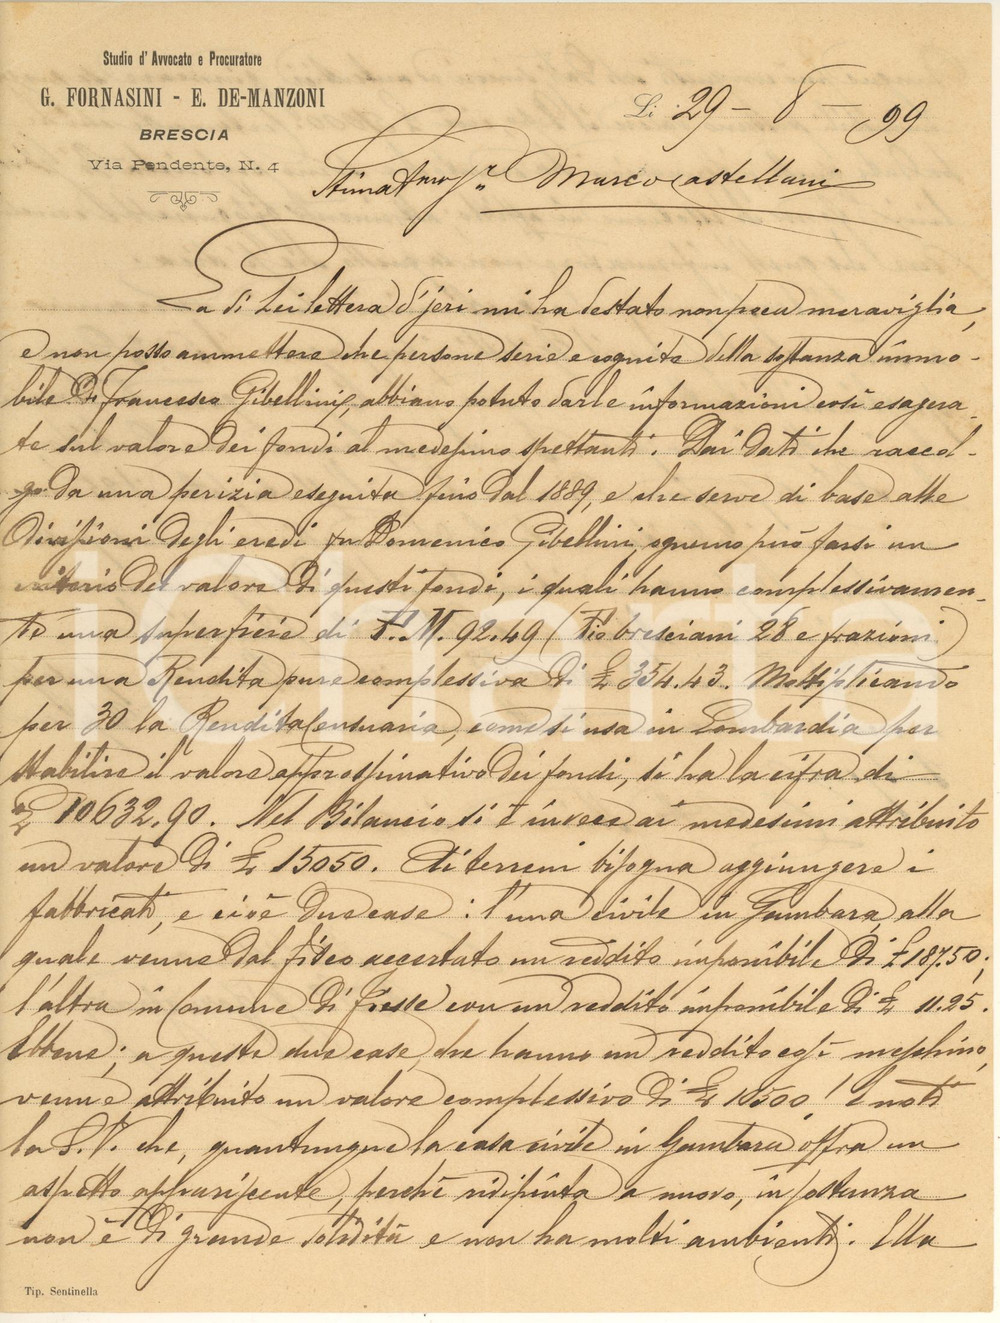 Studio d' Avvocato e Procuratore
G. FORNASINI - E. DE-MANZONI
BRESCIA
Via Pendente, N. 4
Li 29 - 8 - 99
Stimatmo Sr. Marco Castellani
La di Lei lettera d'jeri mi ha destato non poca meraviglia,
e non posso ammettere che persone serie e cognite della sostanza immo-
bile di Francesco Gibellini, abbiano potuto darle informazioni così esagera-
te sul valore dei fondi al medesimo spettanti. Dai dati che raccol-
go da una perizia eseguita fino dal 1889, e che serve di base alle
divisioni degli eredi fu Domenico Gibellini, ognuno può farsi un
criterio del valore di questi fondi, i quali hanno complessivamen-
te una superficie di P. M. 92.49 (Piò bresciani 28 e frazioni)
per una Rendita pure complessiva di £ 354.43. Moltiplicando
per 30 la Rendita Censuaria, come si usa in Lombardia per
stabilire il valore approssimativo dei fondi, si ha la cifra di
£ 10632.90. Nel Bilancio si è invece ai medesimi attribuito
un valore di £ 15050. Ai terreni bisogna aggiungere i
fabbricati, e cioè due case: l'una civile in Gambara, alla
quale venne dal fisco accertato un reddito imponibile di £ 187.50;
l'altra in Comune di Fiesse con un reddito imponibile di £ 11.25.
Ebbene; a queste due case, che hanno un reddito così meschino,
venne attribuito un valore complessivo di £ 10500! E noti
la S. V. che, quantunque la casa civile in Gambara offra un
aspetto appariscente, perchè ridipinta a nuovo, in sostanza
non è di grande solidità e non ha molti ambienti. Ella
Tip. Sentinella
iCharta